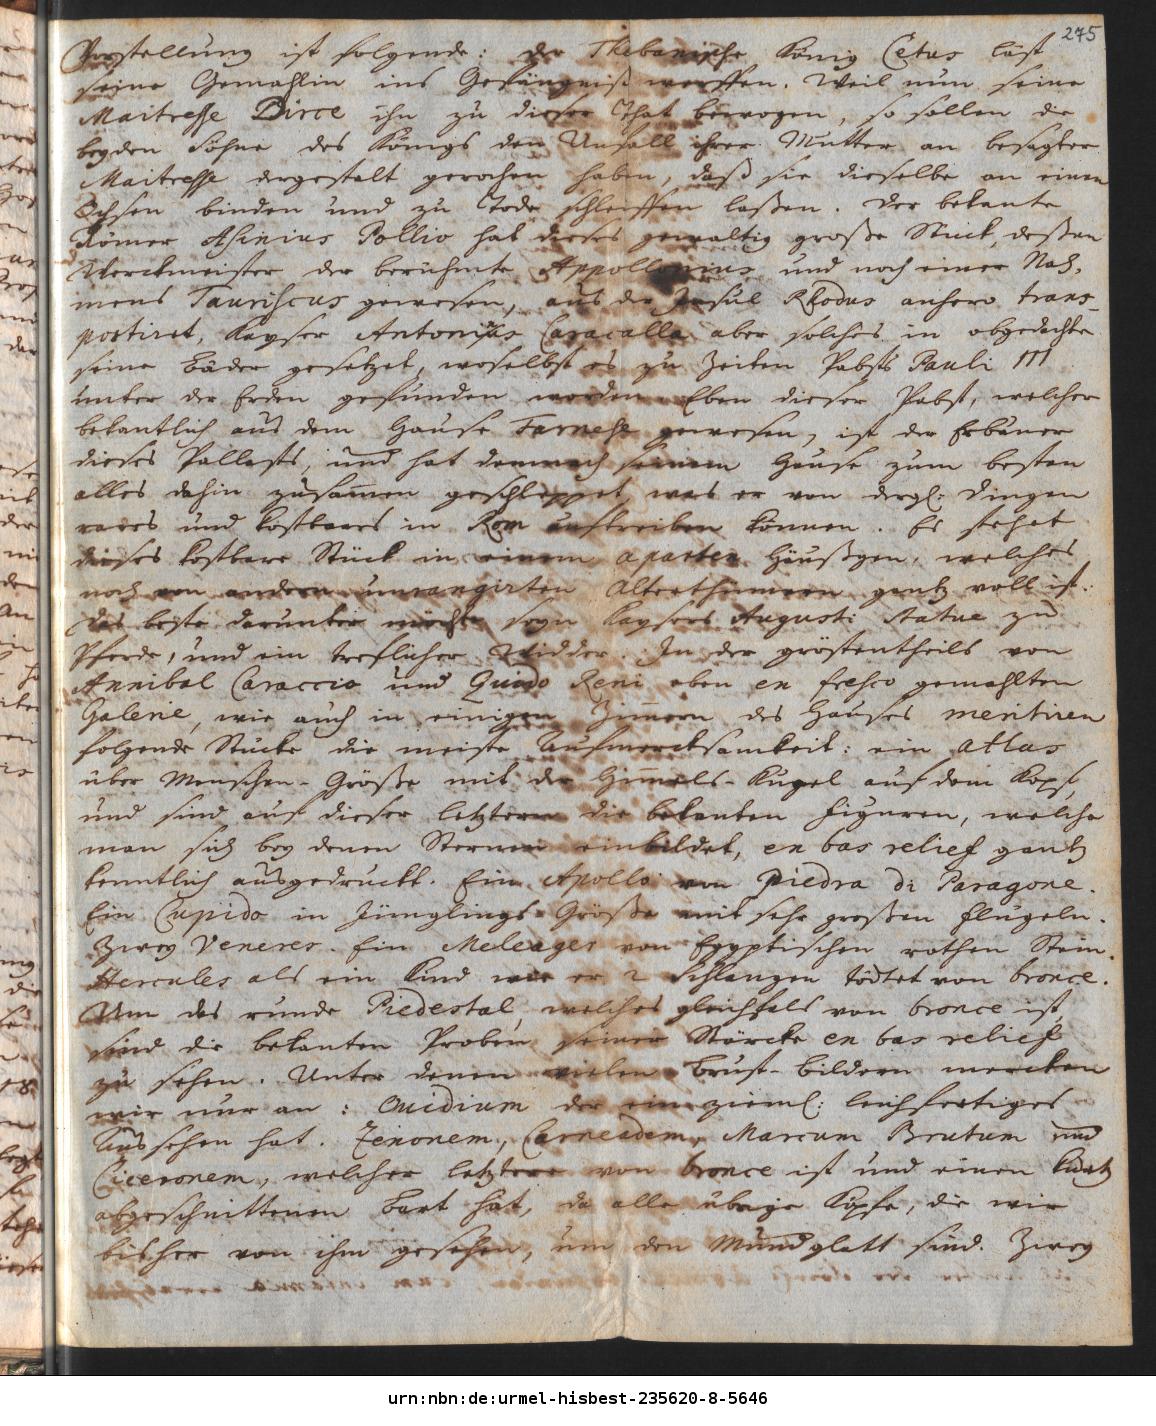 275
Vorstellung ist folgende: der Thebanische König Cetus läst
seine Gemahlin ins Gefängniß werffen. Weil nun seine
Maitresse Dirce ihn zu dieser That bewogen, so sollen die
beyden Söhne des Königs den Unfall ihrer Mutter an besagter
Maitresse dergestalt gerochen haben, daß sie dieselbe an einen
Ochsen binden und zu Tode schleiffen laßen. Der bekante
Römer Asinius Pollio hat dieses gewaltig große Stück, deßen
Werckmeister der berühmte Appollonius und noch einer Nah-
mens Tauriscus gewesen, aus der Insul Rhodus anhero trans-
portiret, Kayser Antonius Caracalla aber solches in obgedachte
seine Bäder gesetzet, woselbst es zu Zeiten Pabsts Pauli III
unter der Erden gefunden worden. Eben dieser Pabst, welcher
bekantlich aus dem Hause Farnese gewesen, ist der Erbauer
dieses Pallasts, und hat demnach seinem Hause zum besten
alles dahin zusamen geschleppet, was er von dergl: Dingen
rares und kostbares in Rom auftreiben können. Es stehet
dieses kostbare Stück in einem aparten Häußgen, welches
noch von andern unrangirten Alterthümern gantz voll ist.
Das beste darunter möchte seyn Kaysers Augusti Statue zu
Pferde, und ein treflicher Widder. In der gröstentheils von
Annibal Caraccio und Quido Reni eben en fresco gemahlten
Galerie, wie auch in einigen Zimern des Hauses meritiren
folgende Stücke die meiste Aufmercksamkeit: ein Atlas
über Menschen-Größe mit der Himels-Kugel auf dem Kopf,
und sind auf dieser letztern die bekanten Figuren, welche
man sich bey denen Sternen einbildet, en bas relief gantz
kenntlich ausgedruckt. Ein Apollo von Piedra di Paragone.
Ein Cupido in Jünglings-Größe mit sehr großen Flügeln.
Zwey Veneres. Ein Meleager von Egyptischen rothen Stein.
Hercules als ein Kind wie er 2 Schlangen tödtet von bronce.
Um das runde Piedestal, welches gleichfals von bronce ist,
sind die bekanten Proben seiner Stärcke en bas relief
zu sehen. Unter denen vielen Brust-bildern mercken
wir nur an: Ovidium der ein zieml: leichfertiges
Aussehen hat. Zenonem, Carneadem, Marcum Brutum und
Ciceronem, welcher letztere von bronce ist und einen kurtz
abgeschnittenen Bart hat, da alle übrige Köpfe, die wir
bisher von ihm gesehen, um den Mund glatt sind. Zwey
urn:nbn:de:urmel-hisbest-235620-8-5646